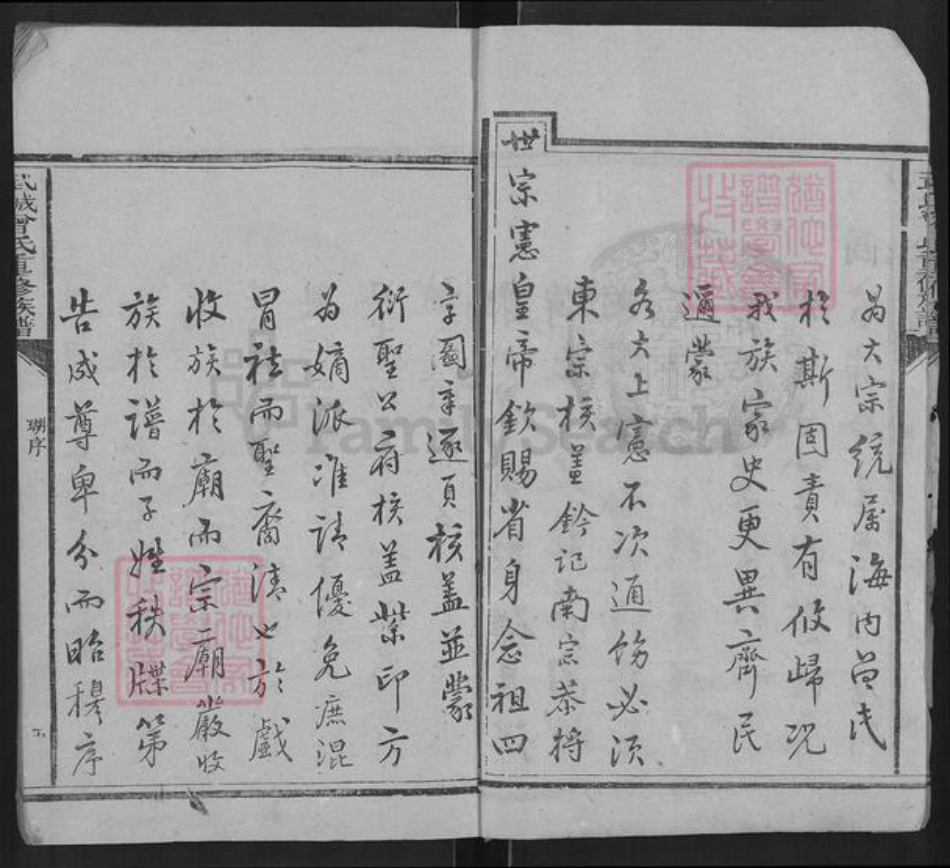 為大宗統屬海內曾氏
於斯固責有攸歸況
我族家史更異齊民
邇蒙
各大上憲不次通飭必須
東宗核蓋鈐記南宗恭將
世宗憲皇帝欽賜省身念祖四
字圖章逐頁核蓋並蒙
衍聖公府核蓋紫印方
為嫡派准請優免庶混
冒祛而聖裔清也於戲
收族於廟而宗廟嚴收
族於譜而子姓秩牒第
告成尊卑分而昭穆序
武城曾氏重修族譜
瑚序
FamilySearch